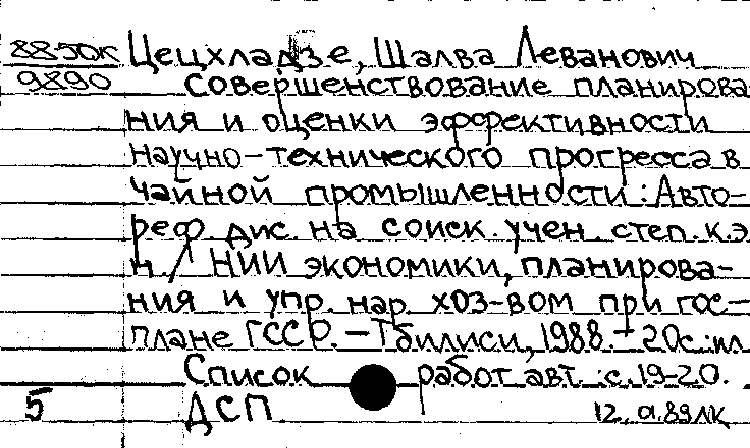 8850к Цецхладзе, Шалва Леванович
9890 Совершенствование планирова
ния и оценки эффективности
научно-технического прогресса в
чайной промышленности: Авто-
реф. дис. на соиск. учен. степ. к.э.
н. / НИИ экономики, планирова-
ния и упр. нар. хоз-вом при гос-
плане ГССР. - Тбилиси, 1988. - 20с.: ил
Список работ авт.: с. 19-20.
5 ДСП